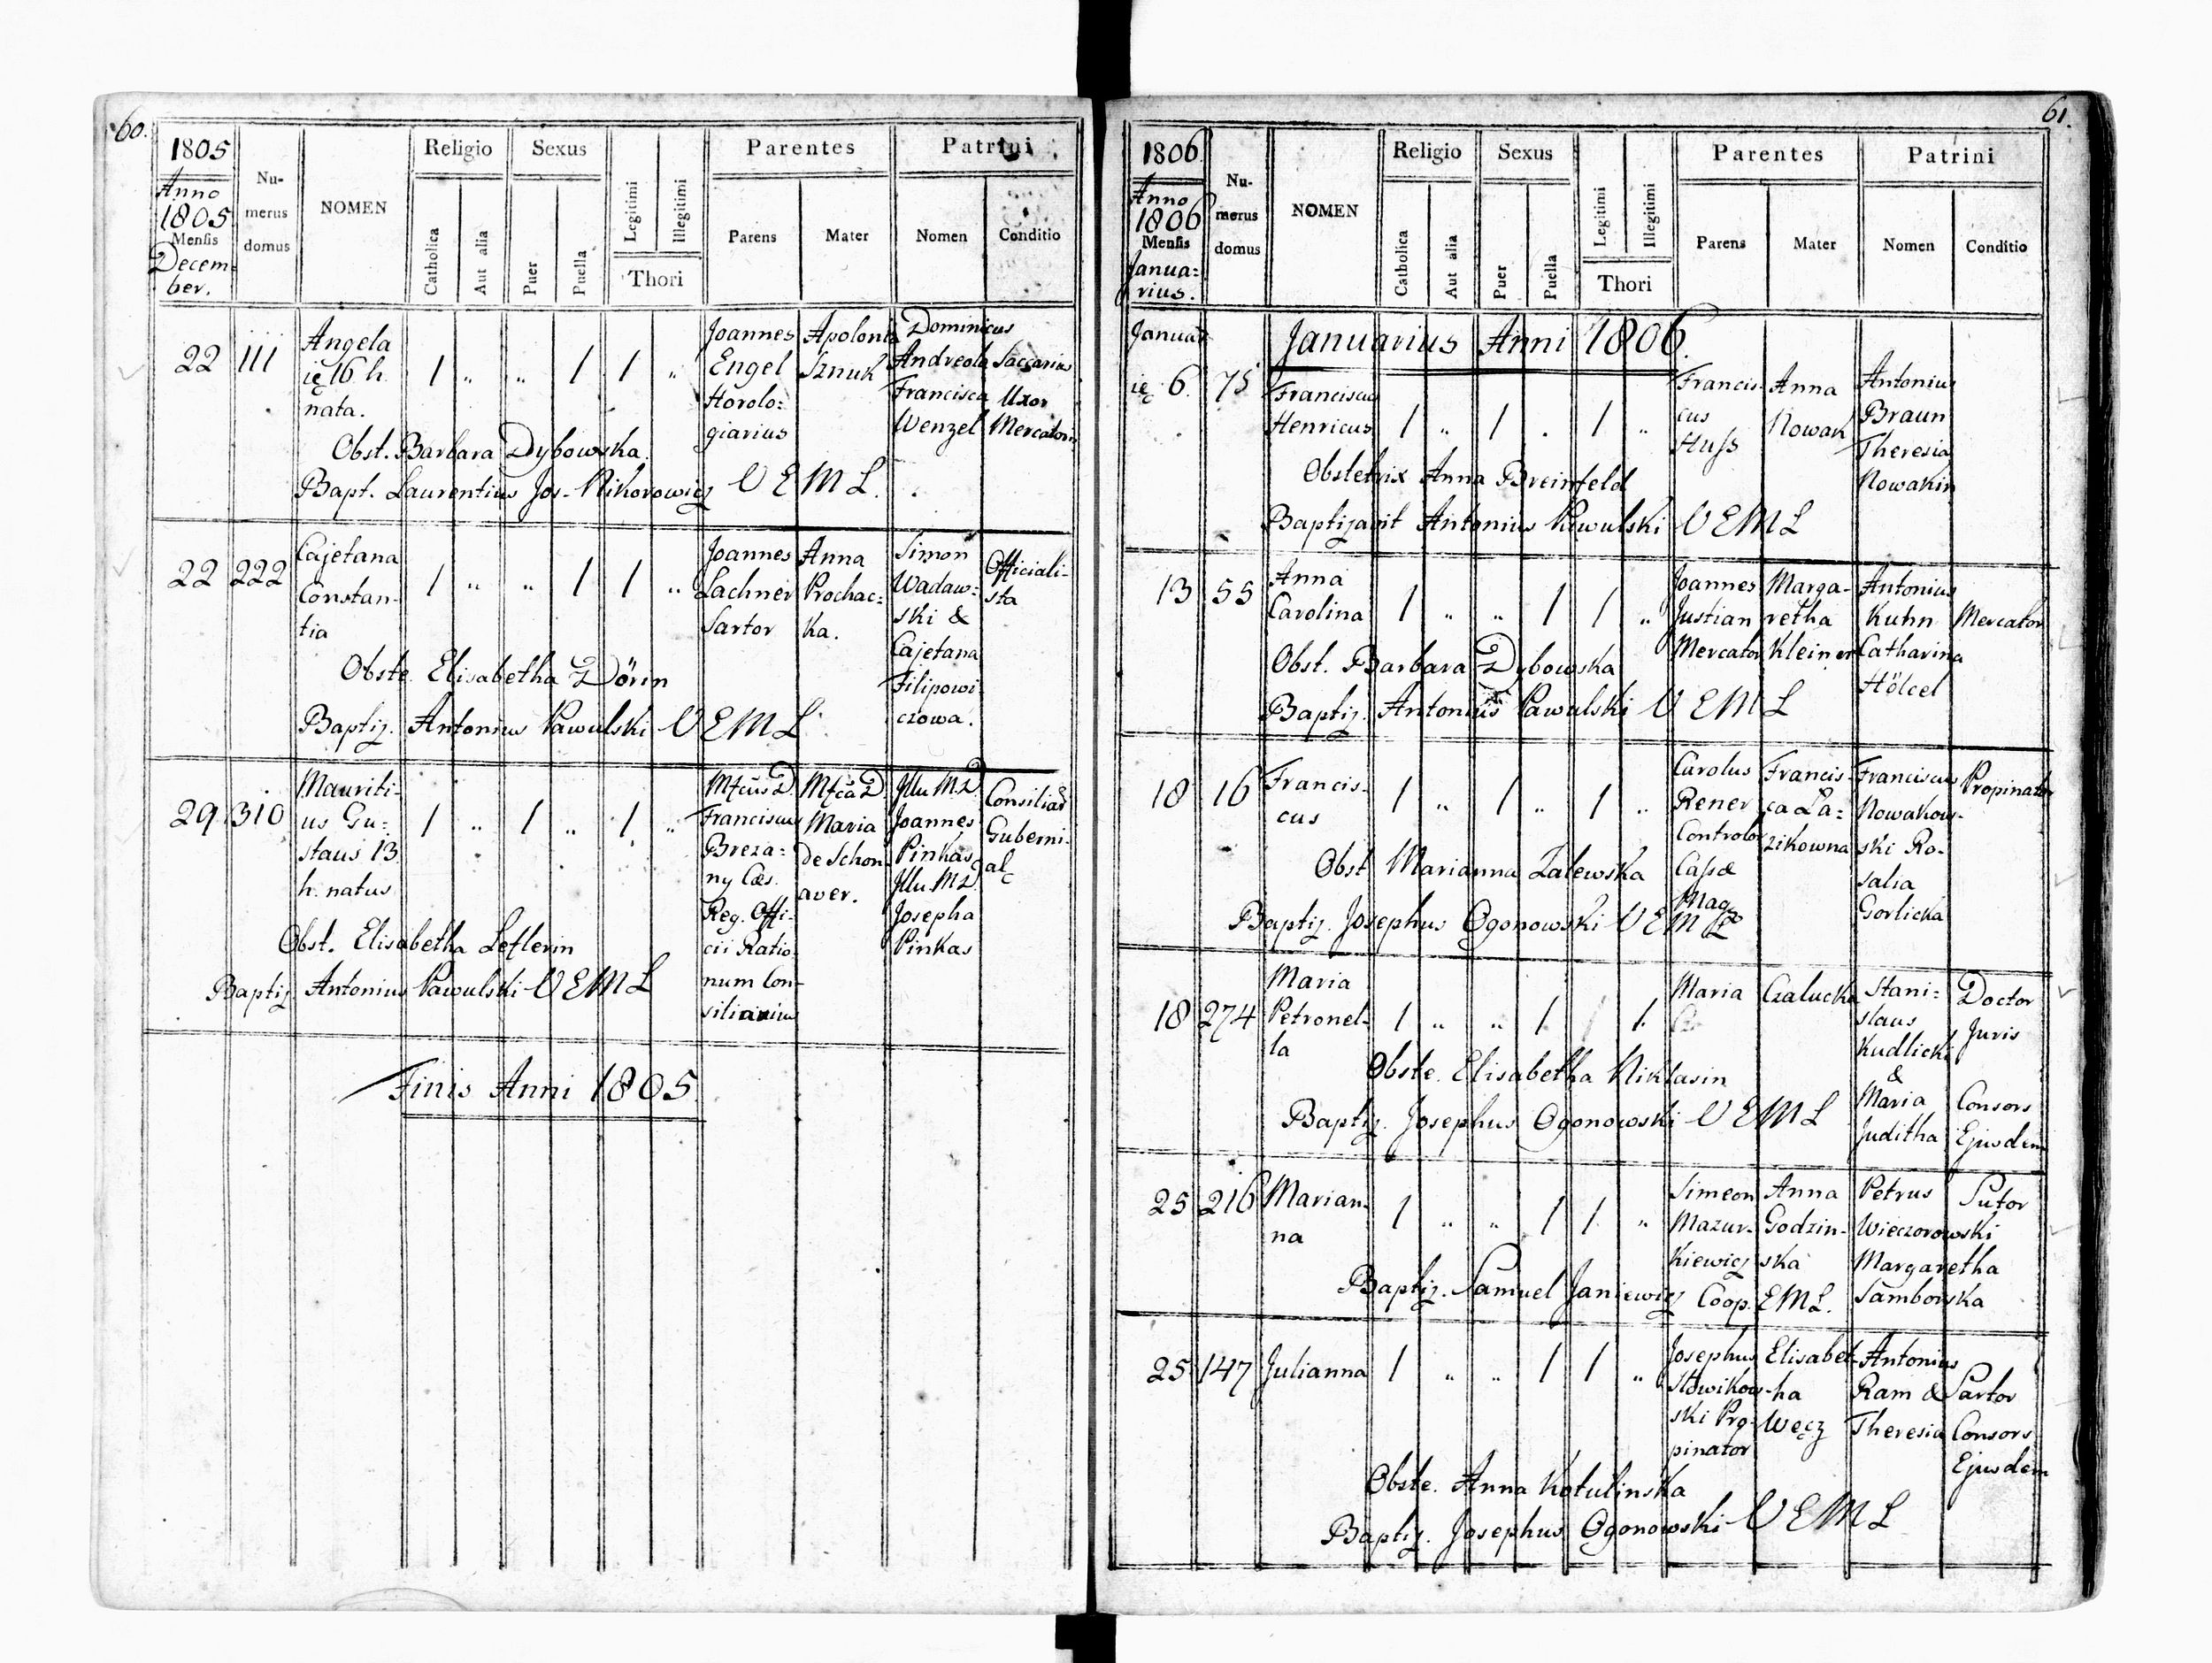 60.
1805
Anno
1805
Mensis
Decem-
ber.
Nu-
merus
domus
NOMEN
Religio
Catholica
Aut alia
Sexus
Puer
Puella
Legitimi
Illegitimi
Thori
Parentes
Parens
Mater
Patrini
Nomen
Conditio
22
111
Angela
16 h.
nata.
/ " " / / "
Joannes
Engel
Horolo:
giarius
Apolonia
Sznuk
Dominicus
Andreola
Francisca
Wenzel
Uxor
Mercatoris
Obst. Barbara Dybowska.
Bapt. Laurentius Jos. Nikorowicz V E M L.
22
222
Cajetana
Constan-
tia
/ " " / / "
Joannes
Lachner
Sartor
Anna
Prochac:
ka.
Simon
Wadaw:
ski &
Cajetana
Filipowi
czowa.
Officiali-
sta
Obste. Elisabetha Dörin
Baptiz. Antonius Pawulski V E M L
29
310
Mauriti-
us Gu:
staus 13
h. natus
/ " / " / "
Mfcus D.
Franciscus
Breza:
ny Cæs.
Reg. Offi-
cii Ratio
num Con-
siliarius
Mfca D.
Maria
De Schon
aver.
Illu. M. D.
Joannes
Pinkas
Illu. M. D.
Josepha
Pinkas
Consiliar
Guberni-
al
Obst. Elisabetha Leflerin
Baptiz Antonius Pawulski V E M L
Finis Anni 1805.
61.
1806.
Anno
1806
Mensis
Janua:
rius.
Nu-
merus
domus
NOMEN
Religio
Catholica
Aut alia
Sexus
Puer
Puella
Legitimi
Illegitimi
Thori
Parentes
Parens
Mater
Patrini
Nomen
Conditio
Januar
Januarius Anni 1806.
6.
75
Franciscus
Henricus
/ " / . / "
Francis-
cus
Huss
Anna
Nowak
Antonius
Braun
Theresia
Nowakin
Obstetrix Anna Breinfeld
Baptizavit Antonius Pawulski V E M L
13
55
Anna
Carolina
/ " " / / "
Joannes
Justian
Mercator
Marga-
retha
Kleiner
Antonius
Kuhn
Catharina
Hölcel
Mercator
Obst. Barbara Dybowska
Baptiz. Antonius Pawulski V E M L
18
16
Francis-
cus
/ " / " / "
Carolus
Rener
Controlor
Cassæ
Mag
Francis-
ca La:
zikowna
Franciscus
Nowakow-
ski Ro-
salia
Gorlicka
Propinator
Obst Marianna Zalewska
Baptiz. Josephus Ogonowski V E M L
18
274
Maria
Petronel-
la
/ " " / /
Maria
Czalucka
Stani:
slaus
Kudlicki
&
Maria
Juditha
Doctor
Juris
Consors
Ejusdem
Obste. Elisabetha Niklasin
Baptiz. Josephus Ogonowski V E M L
25
216
Marian-
na
/ " " / / "
Simeon
Mazur-
kiewicz
Anna
Godzin-
ska
Petrus
Wieczorowski
Margaretha
Samborska
Sutor
Baptiz. Samuel Janiewicz Coop. E M L.
25
147
Julianna
/ " " / / "
Josephus
Słowikow-
ski Pro-
pinator
Elisabet-
ha
Węcz
Antonius
Ram &
Theresia
Sartor
Consors
Ejusdem
Obste. Anna Kotulinska
Baptiz. Josephus Ogonowski V E M L